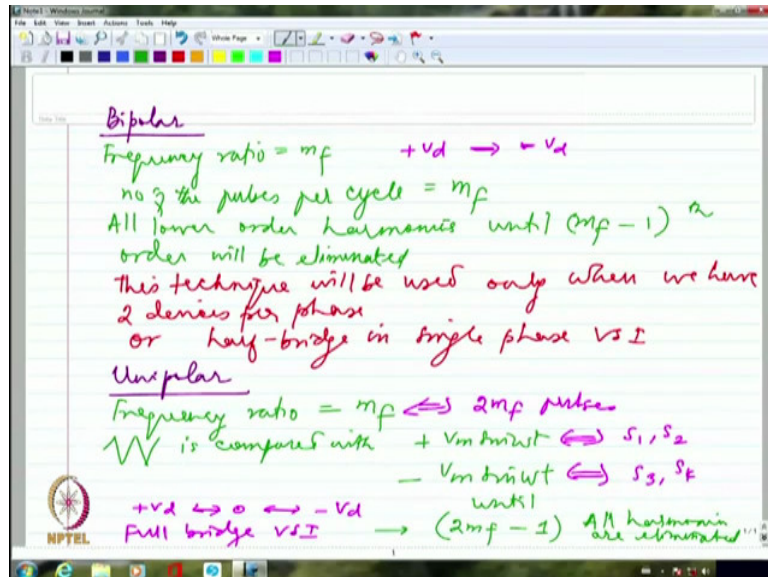 Note1 - Windows Journal
File Edit View Insert Actions Tools Help
Whole Page
Note Title
Bipolar
Frequency ratio = mf +Vd → - Vd
no of the pulses per cycle = mf
All lower order harmonics until (mf - 1) th
order will be eliminated
This technique will be used only when we have
2 devices per phase
or half-bridge in single phase VSI
Unipolar
Frequency ratio = mf ⇔ 2mf pulses
is compared with + Vm sinwt ⇔ S1, S2
- Vm sinwt ⇔ S3, S4
+Vd ↔ 0 ↔ -Vd until
Full bridge VSI → (2mf - 1) All harmonics
are eliminated
NPTEL
1/1
1